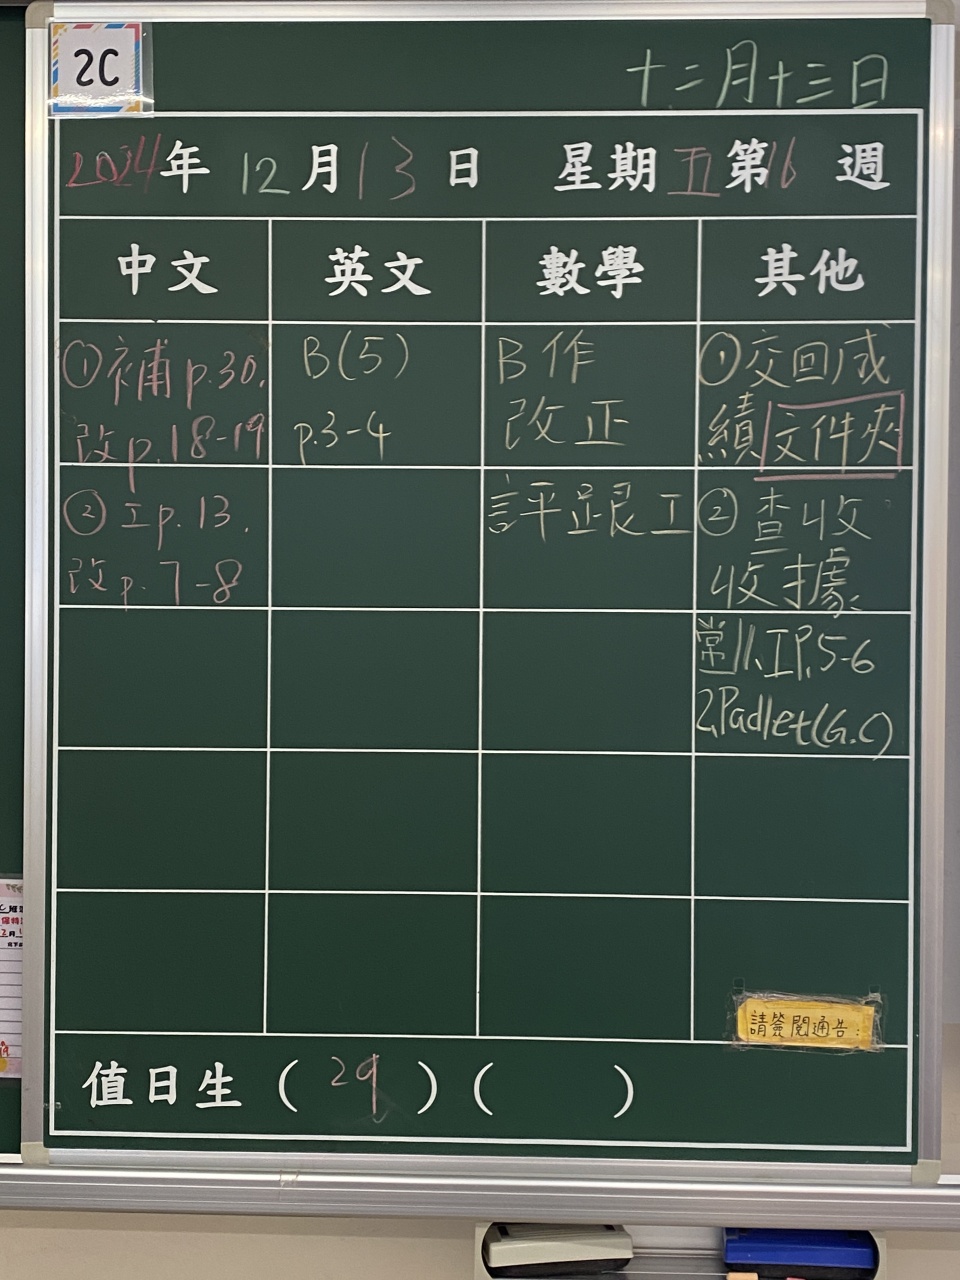 2C
十二月十三日
2024年 12月13日 星期五第16週
中文 英文 數學 其他
①補p.30.
改p.18-19
B(5)
p.3-4
B作
改正
①交回成
績文件夾
②工p.13.
改p.7-8
評跟工
②查收
收據
常1.工P.5-6
2.Padlet(G.C)
請簽閱通告:
值日生(29)( )